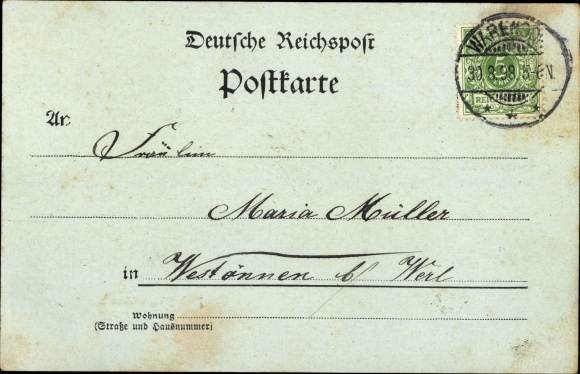 Deutsche Reichspost
Postkarte
WARENDORF
30.8.98.5-6N.
5
An
Fräulein
Maria Müller
in Westönnen b/ Werl
Wohnung
(Straße und Hausnummer)